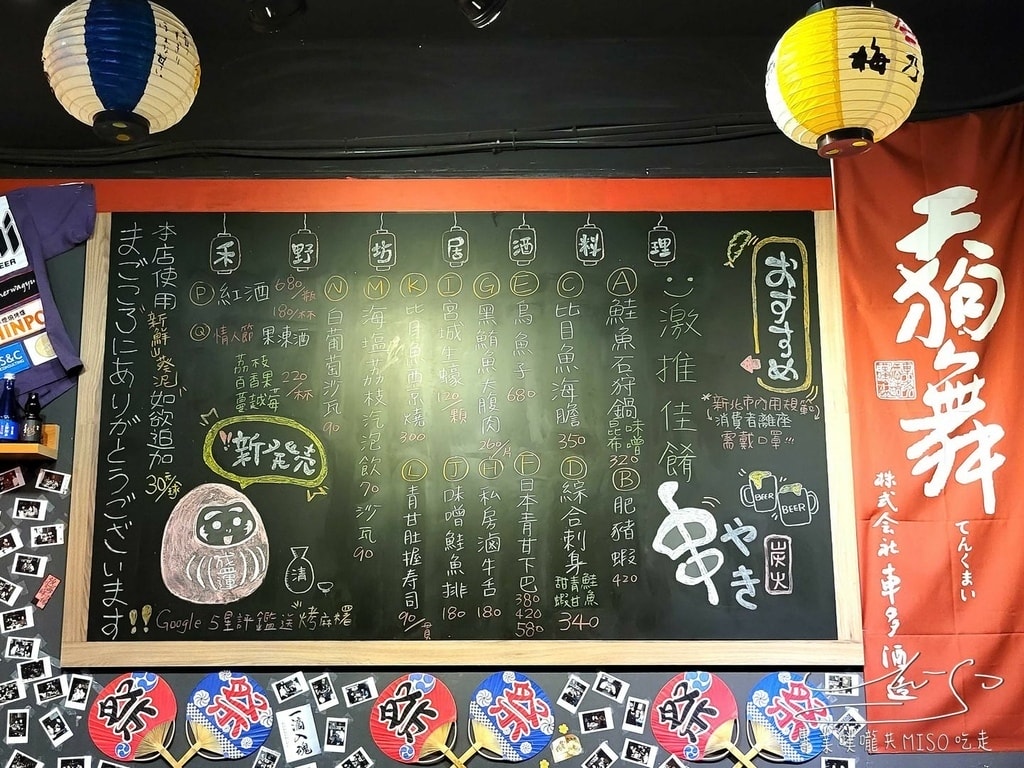 梅乃
禾野坊居酒料理
おすすめ
激推佳餚
*新北市內用規範
消費者離座
需戴口罩!!!
BEER
BEER
串やき
炭火
Ⓐ鮭魚石狩鍋 味噌 昆布 320
Ⓑ肥豬蝦 420
Ⓒ比目魚海膽 350
Ⓓ綜合刺身 鮭魚 青甘 甜蝦 340
Ⓔ烏魚子 680
Ⓕ日本青甘下巴 380 420 580
Ⓖ黑鮪魚大腹肉 260/片
Ⓗ私房滷牛舌 180
Ⓘ宮城蠔 120顆
Ⓙ味噌鮭魚排 180
Ⓚ比目魚西京燒 300
Ⓛ青甘肚握壽司 90/貫
Ⓜ海塩荔枝汽泡飲 70 沙瓦 90
Ⓝ白葡萄沙瓦 90
Ⓟ紅酒 680/瓶
180/杯
Ⓠ情人節果凍酒
荔枝
百香果
蔓越莓
220/杯
新発売
清
本店使用新鮮山葵泥 如欲追加 30元/球
まごころにありがとうございます!!
Google 5星評鑑送烤麻糬
天狗舞
てんくまい
株式会社車多酒造
祭
祭
祭
祭
祭
祭
一滴入魂
MISO吃走